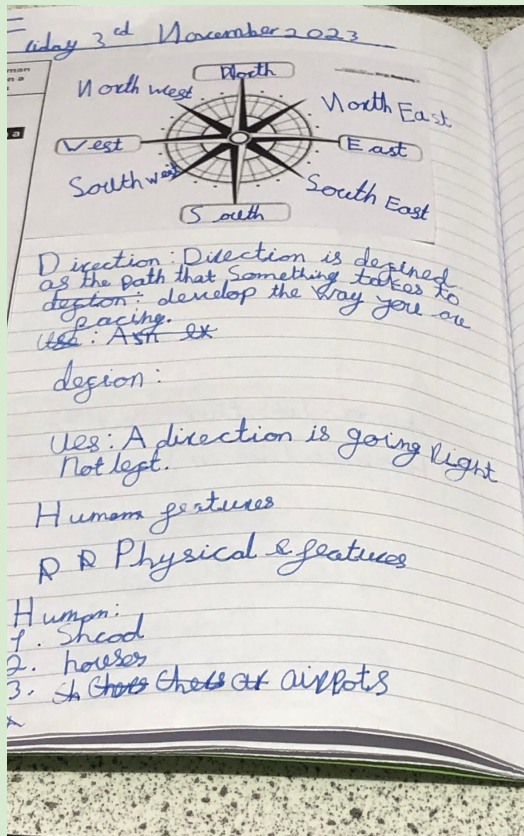 Friday 3rd November 2023
North
North west
North East
West
East
South west
South East
South
Direction : Direction is defined
as the path that Something takes to
degion : develop the way you are
facing.
use : Ash ex
degion :
ues : A direction is going Right
not left.
Humam features
R R Physical & features
Human:
1. Shcool
2. houses
3. sh airpots